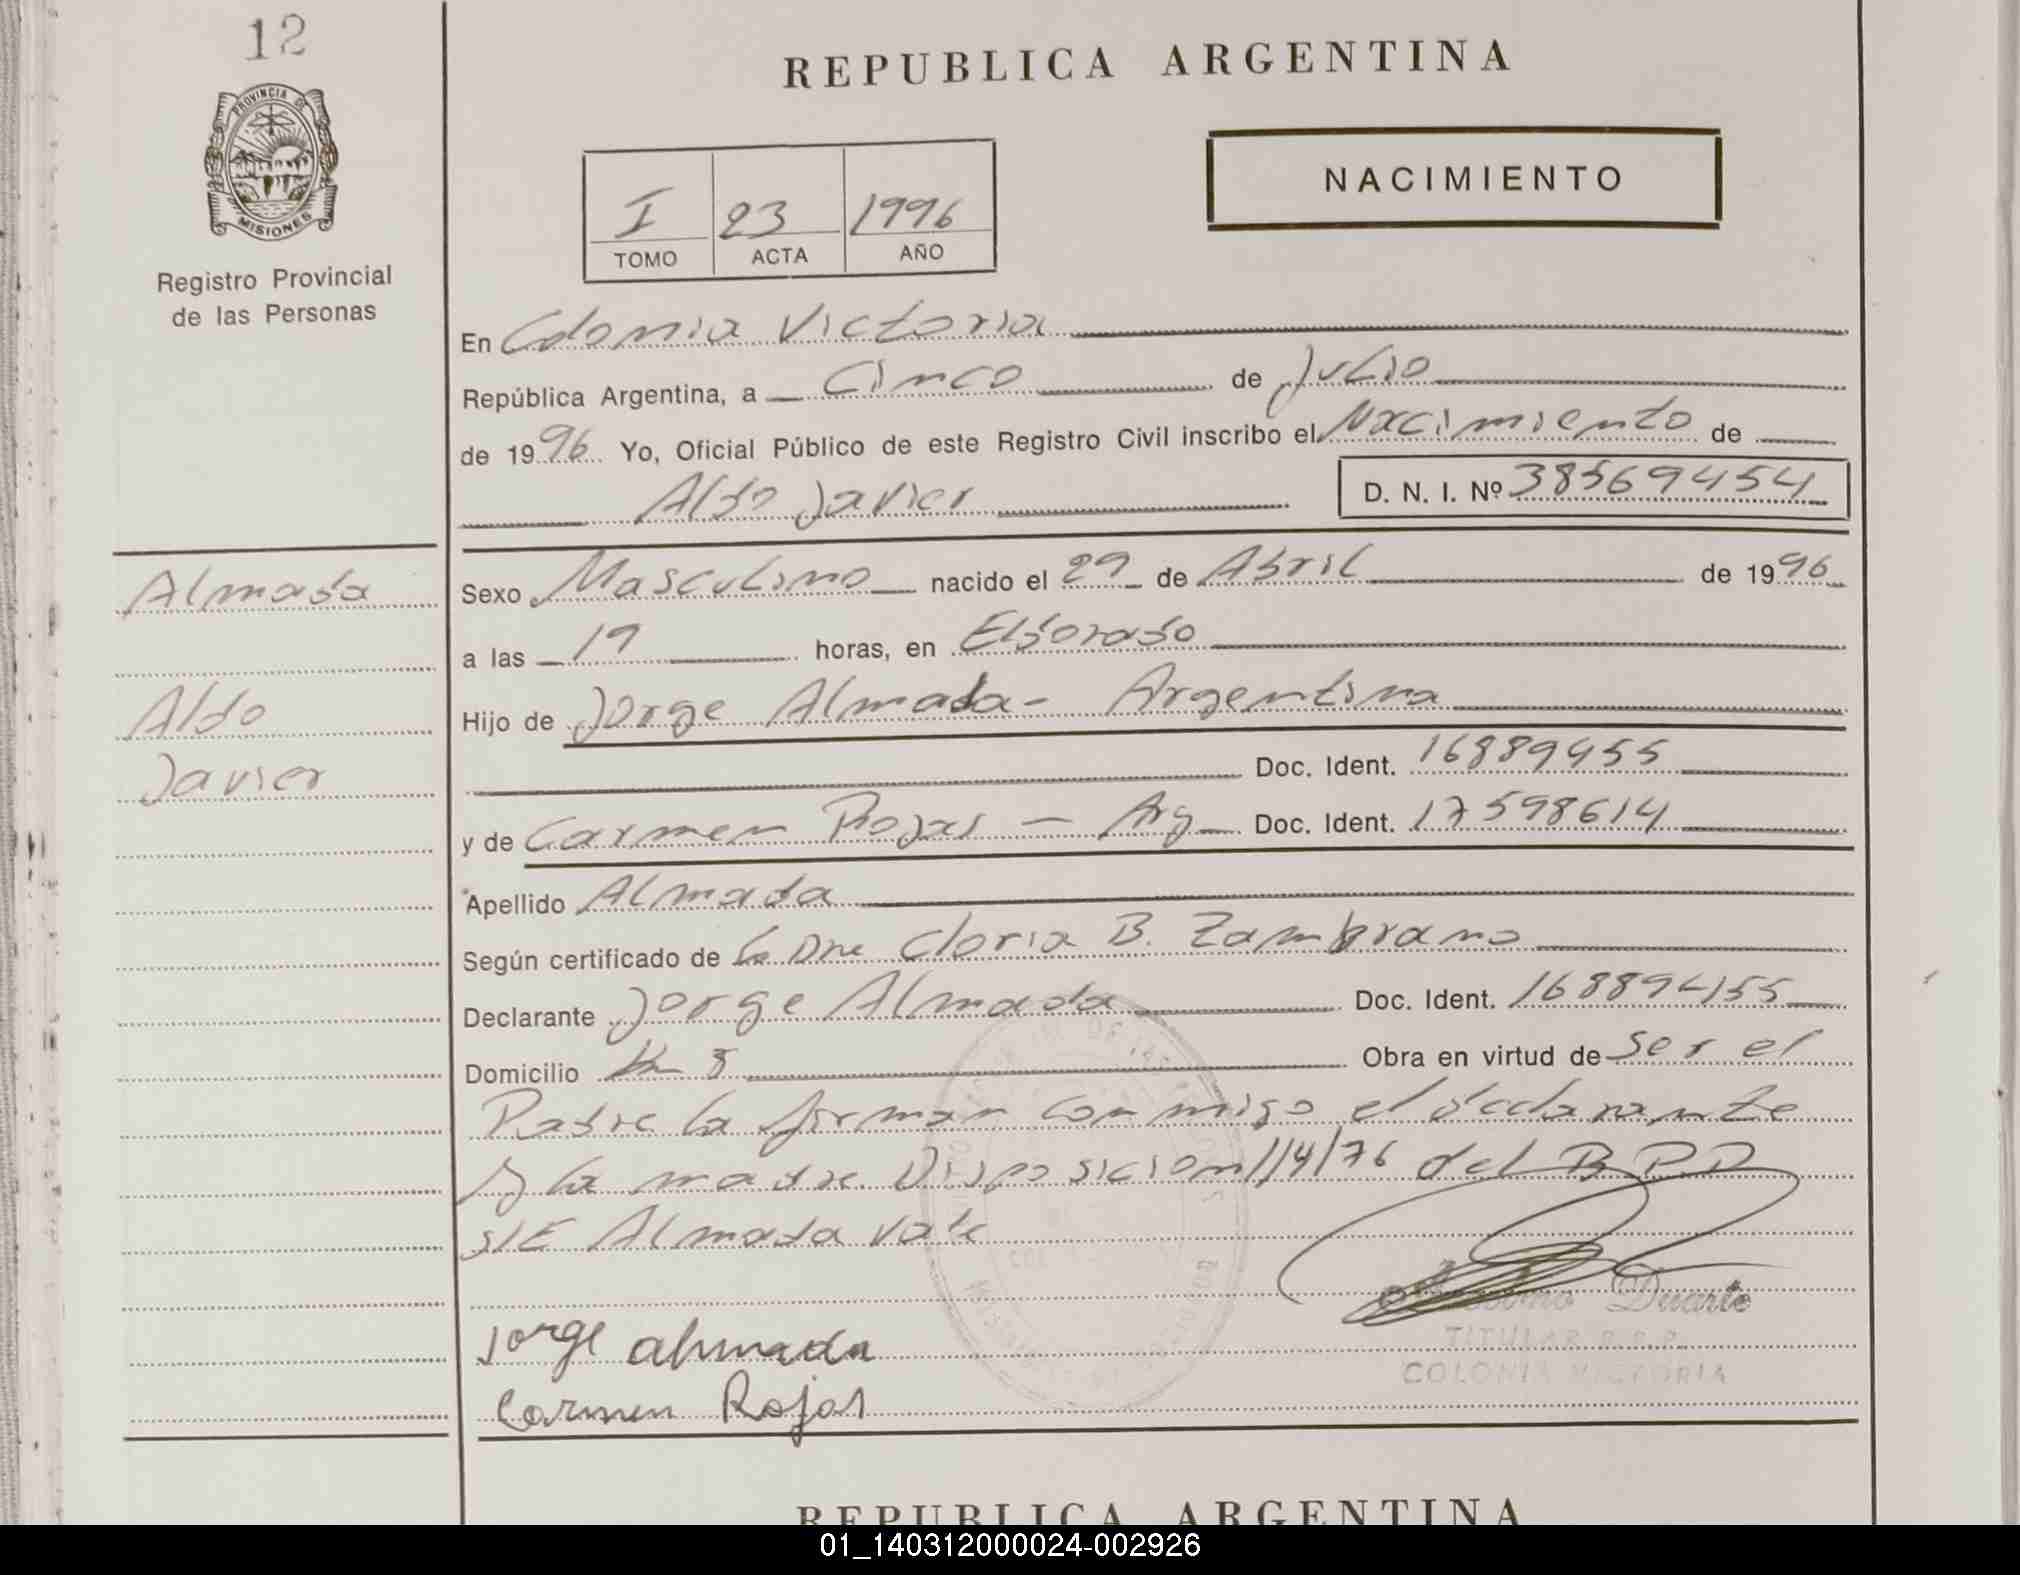 12
PROVINCIA DE
MISIONES
Registro Provincial
de las Personas
REPUBLICA ARGENTINA
I 23 1996
TOMO ACTA AÑO
NACIMIENTO
En Colonia Victoria
República Argentina, a Cinco de Julio
de 1996 Yo, Oficial Público de este Registro Civil inscribo el Nacimiento de
Aldo Javier D. N. I. Nº 38569454
Almada
Aldo
Javier
Sexo Masculino nacido el 29 de Abril de 1996
a las 19 horas, en Eldorado
Hijo de Jorge Almada - Argentina
Doc. Ident. 16889455
y de Carmen Rojas - Arg Doc. Ident. 17598614
Apellido Almada
Según certificado de la Dra Gloria B. Zambrano
Declarante Jorge Almada Doc. Ident. 16889455
Domicilio Km Obra en virtud de Ser el
Padre la firman conmigo el declarante
y la madre Disposicion 114/76 del
S/E Almada Vale
Duarte
TITULAR R.P.P.
COLONIA VICTORIA
Jorge almada
Carmen Rojas
REPUBLICA ARGENTINA
01_140312000024-002926